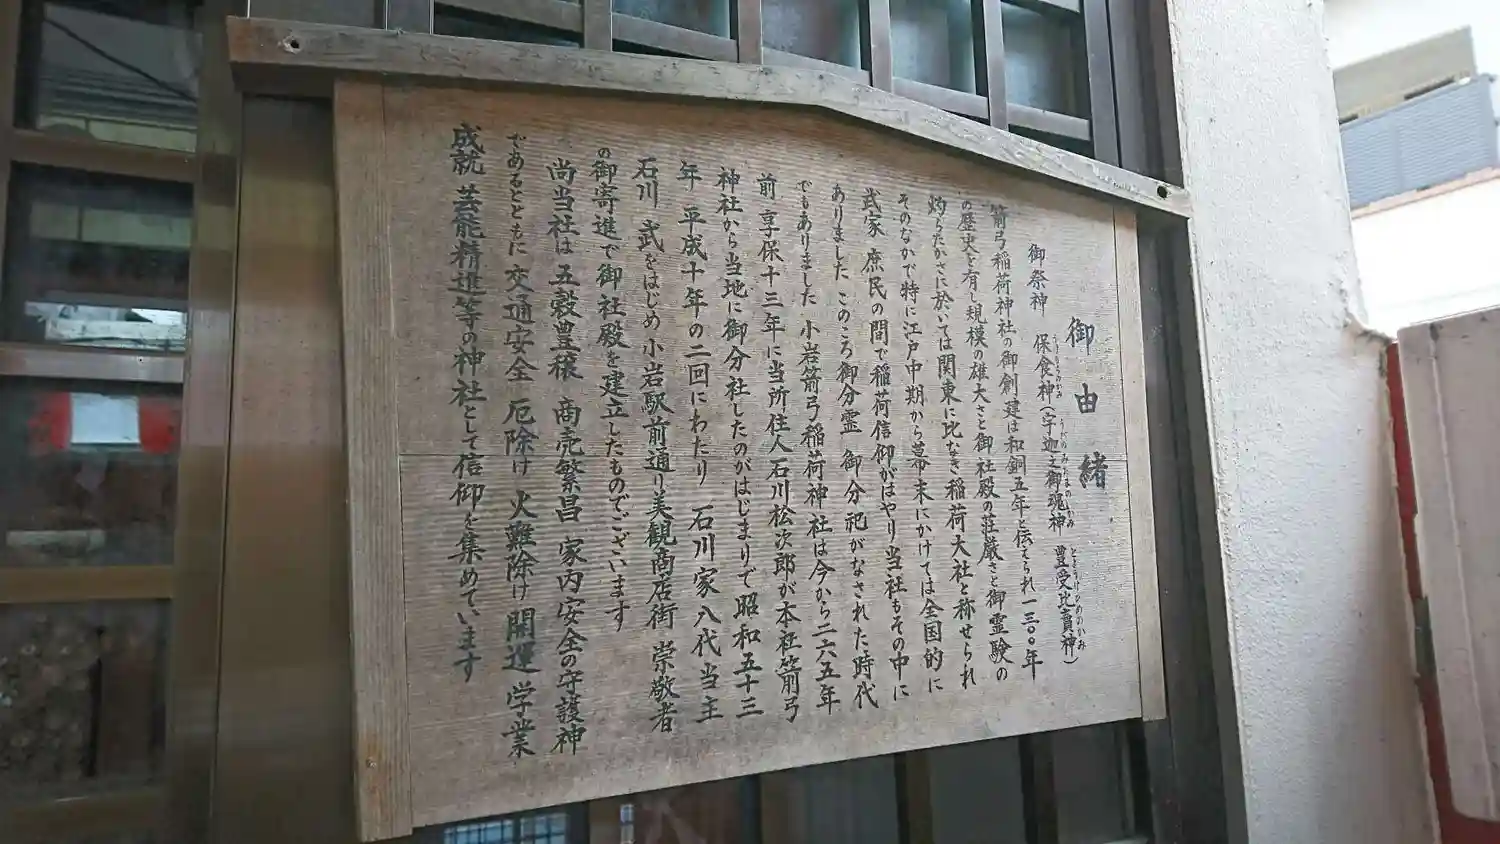 御由緒
御祭神 保食神(宇迦之御魂神 豊受比賣神)
うけもちのかみ うかのみたまのかみ とようけひめのかみ
箭弓稲荷神社の御創建は和銅五年と伝えられ一三〇〇年
の歴史を有し規模の雄大さと御社殿の荘厳さと御霊験の
灼らたかさに於いては関東に比なき稲荷大社と称せられ
そのなかで特に江戸中期から幕末にかけては全国的に
武家 庶民の間で稲荷信仰がはやり当社もその中に
ありました このころ御分霊 御分祀がなされた時代
でもありました 小岩箭弓稲荷神社は今から二六五年
前 享保十三年に当所住人石川松次郎が本社箭弓
神社から当地に御分社したのがはじまりで昭和五十三
年 平成十年の二回にわたり 石川家八代当主
石川 武をはじめ小岩駅前通り美観商店街 崇敬者
の御寄進で御社殿を建立したものでございます
尚当社は五穀豊穣 商売繁昌 家内安全の守護神
であるとともに交通安全 厄除け 火難除け 開運 学業
成就 芸能精進等の神社として信仰を集めています